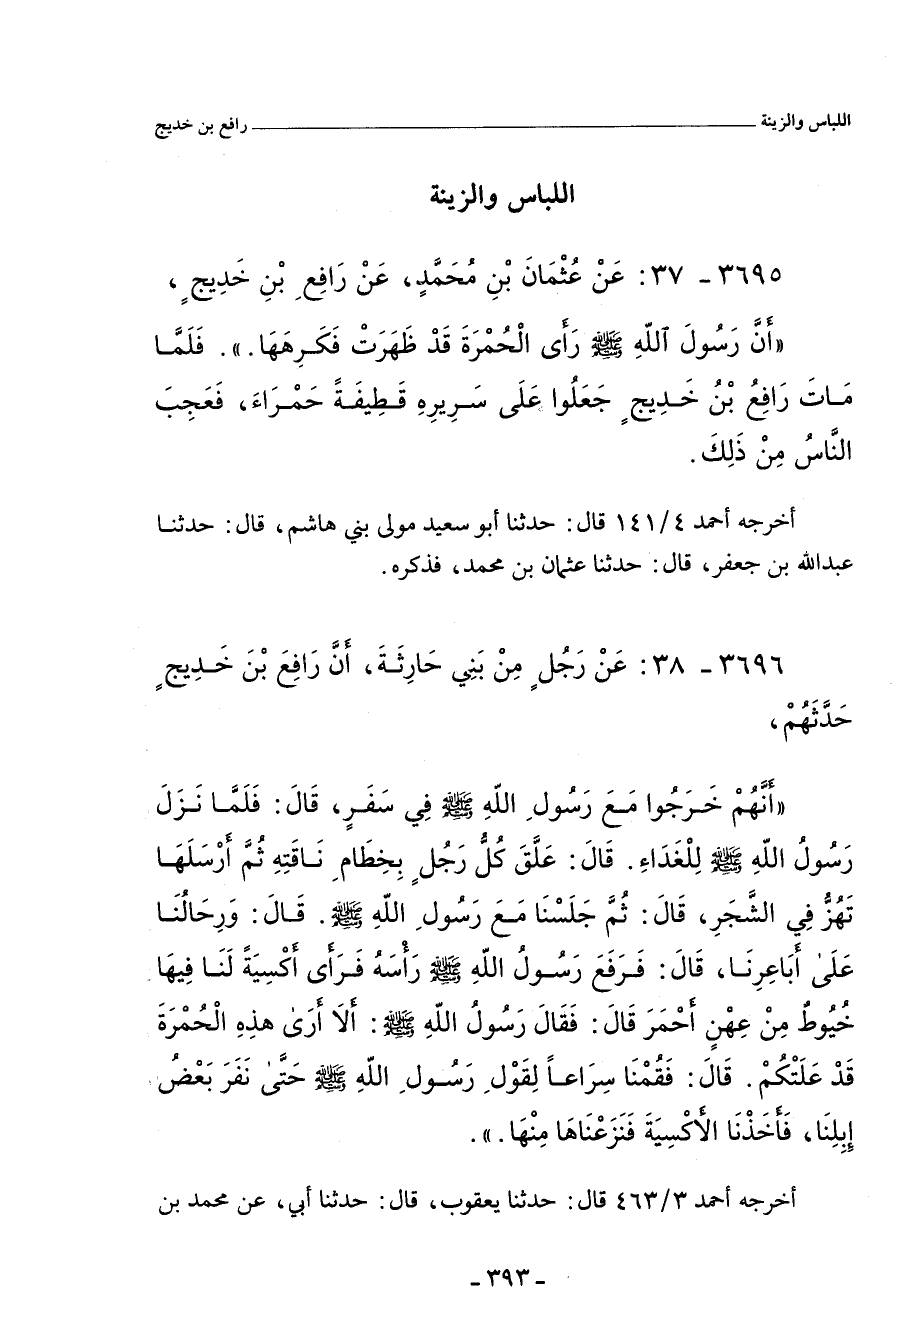 اللباس والزينة ــــــــــــــــــــ رافع بن خديج
اللباس والزينة
٣٦٩٥ - ٣٧: عَنْ عُثْمَانَ بْنِ مُحَمَّدٍ، عَنْ رَافِعِ بْنِ خَدِيجٍ،
«أَنَّ رَسُولَ ٱللّهِ ﷺ رَأَى الْحُمْرَةَ قَدْ ظَهَرَتْ فَكَرِهَهَا.». فَلَمَّا
مَاتَ رَافِعُ بْنُ خَدِيجٍ جَعَلُوا عَلَى سَرِيرِهِ قَطِيفَةً حَمْرَاءَ، فَعَجِبَ
النَّاسُ مِنْ ذَلِكَ.
أخرجه أحمد ٤/ ١٤١ قال: حدثنا أبو سعيد مولى بني هاشم، قال: حدثنا
عبدالله بن جعفر، قال: حدثنا عثمان بن محمد، فذكره.
٣٦٩٦ - ٣٨: عَنْ رَجُلٍ مِنْ بَنِي حَارِثَةَ، أَنَّ رَافِعَ بْنَ خَدِيجٍ
حَدَّثَهُمْ،
«أَنَّهُمْ خَرَجُوا مَعَ رَسُولِ اللّهِ ﷺ فِي سَفَرٍ، قَالَ: فَلَمَّا نَزَلَ
رَسُولُ اللّهِ ﷺ لِلْغَدَاءِ. قَالَ: عَلَّقَ كُلُّ رَجُلٍ بِخِطَامِ نَاقَتِهِ ثُمَّ أَرْسَلَهَا
تَهُزُّ فِي الشَّجَرِ، قَالَ: ثُمَّ جَلَسْنَا مَعَ رَسُولِ اللّهِ ﷺ. قَالَ: وَرِحَالُنَا
عَلَىٰ أَبَاعِرِنَا، قَالَ: فَرَفَعَ رَسُولُ اللّهِ ﷺ رَأْسَهُ فَرَأَى أَكْسِيَةً لَنَا فِيهَا
خُيُوطٌ مِنْ عِهْنٍ أَحْمَرَ قَالَ: فَقَالَ رَسُولُ اللّهِ ﷺ: أَلَا أَرَىٰ هذِهِ الْحُمْرَةَ
قَدْ عَلَتْكُمْ. قَالَ: فَقُمْنَا سِرَاعاً لِقَوْلِ رَسُولِ اللّهِ ﷺ حَتَّىٰ نَفَرَ بَعْضُ
إِبِلِنَا، فَأَخَذْنَا الأَكْسِيَةَ فَنَزَعْنَاهَا مِنْهَا.».
أخرجه أحمد ٣/ ٤٦٣ قال: حدثنا يعقوب، قال: حدثنا أبي، عن محمد بن
- ٣٩٣ -